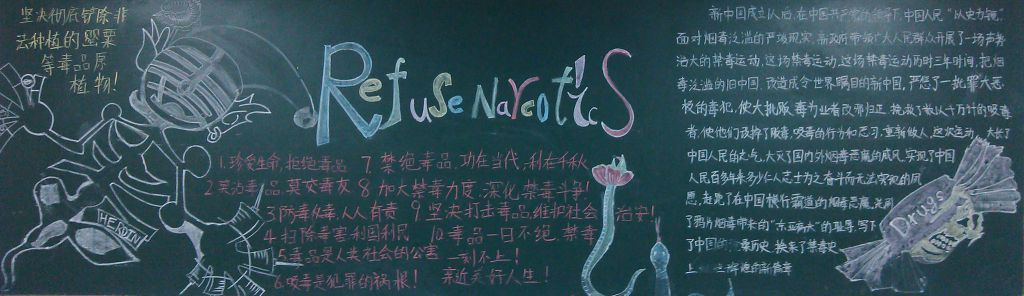 坚决彻底铲除非
法种植的罂粟
等毒品原
植物!
Refuse Narcotics
1.珍爱生命,拒绝毒品
2.莫沾毒品,莫交毒友
3.防毒反毒,人人有责
4.扫除毒害利国利民
5.毒品是人类社会的公害
6.吸毒是犯罪的祸根!
7.禁绝毒品,功在当代,利在千秋
8.加大禁毒力度,深化禁毒斗争!
9.坚决打击毒品,维护社会治安!
10.毒品一日不绝,禁毒
一刻不止!
亲近美好人生!
HEROIN
新中国成立以后,在中国共产党的领导下,中国人民"以史为镜"
面对烟毒泛滥的严峻现实,新政府带领广大人民群众开展了一场声势
浩大的禁毒运动,这场禁毒运动,这场禁毒运动历时三年时间,把烟
毒泛滥的旧中国,改造成令世界瞩目的新中国,严惩了一批罪大恶
极的毒犯,使大批贩毒为业者改邪归正,挽救了数以千万计的吸毒
者,使他们戒掉了贩毒,吸毒的行为和恶习,重新做人,这次运动,大长了
中国人民的志气,大灭了国内外烟毒恶魔的威风,实现了中国
人民百多年来多少仁人志士为之奋斗而无法实现的夙
愿,赶跑了在中国横行霸道的烟毒恶魔,洗刷
了鸦片烟毒带来的"东亚病夫"的耻辱,写下
了中国的 毒历史,换来了禁毒史
上 的新篇章
Drugs